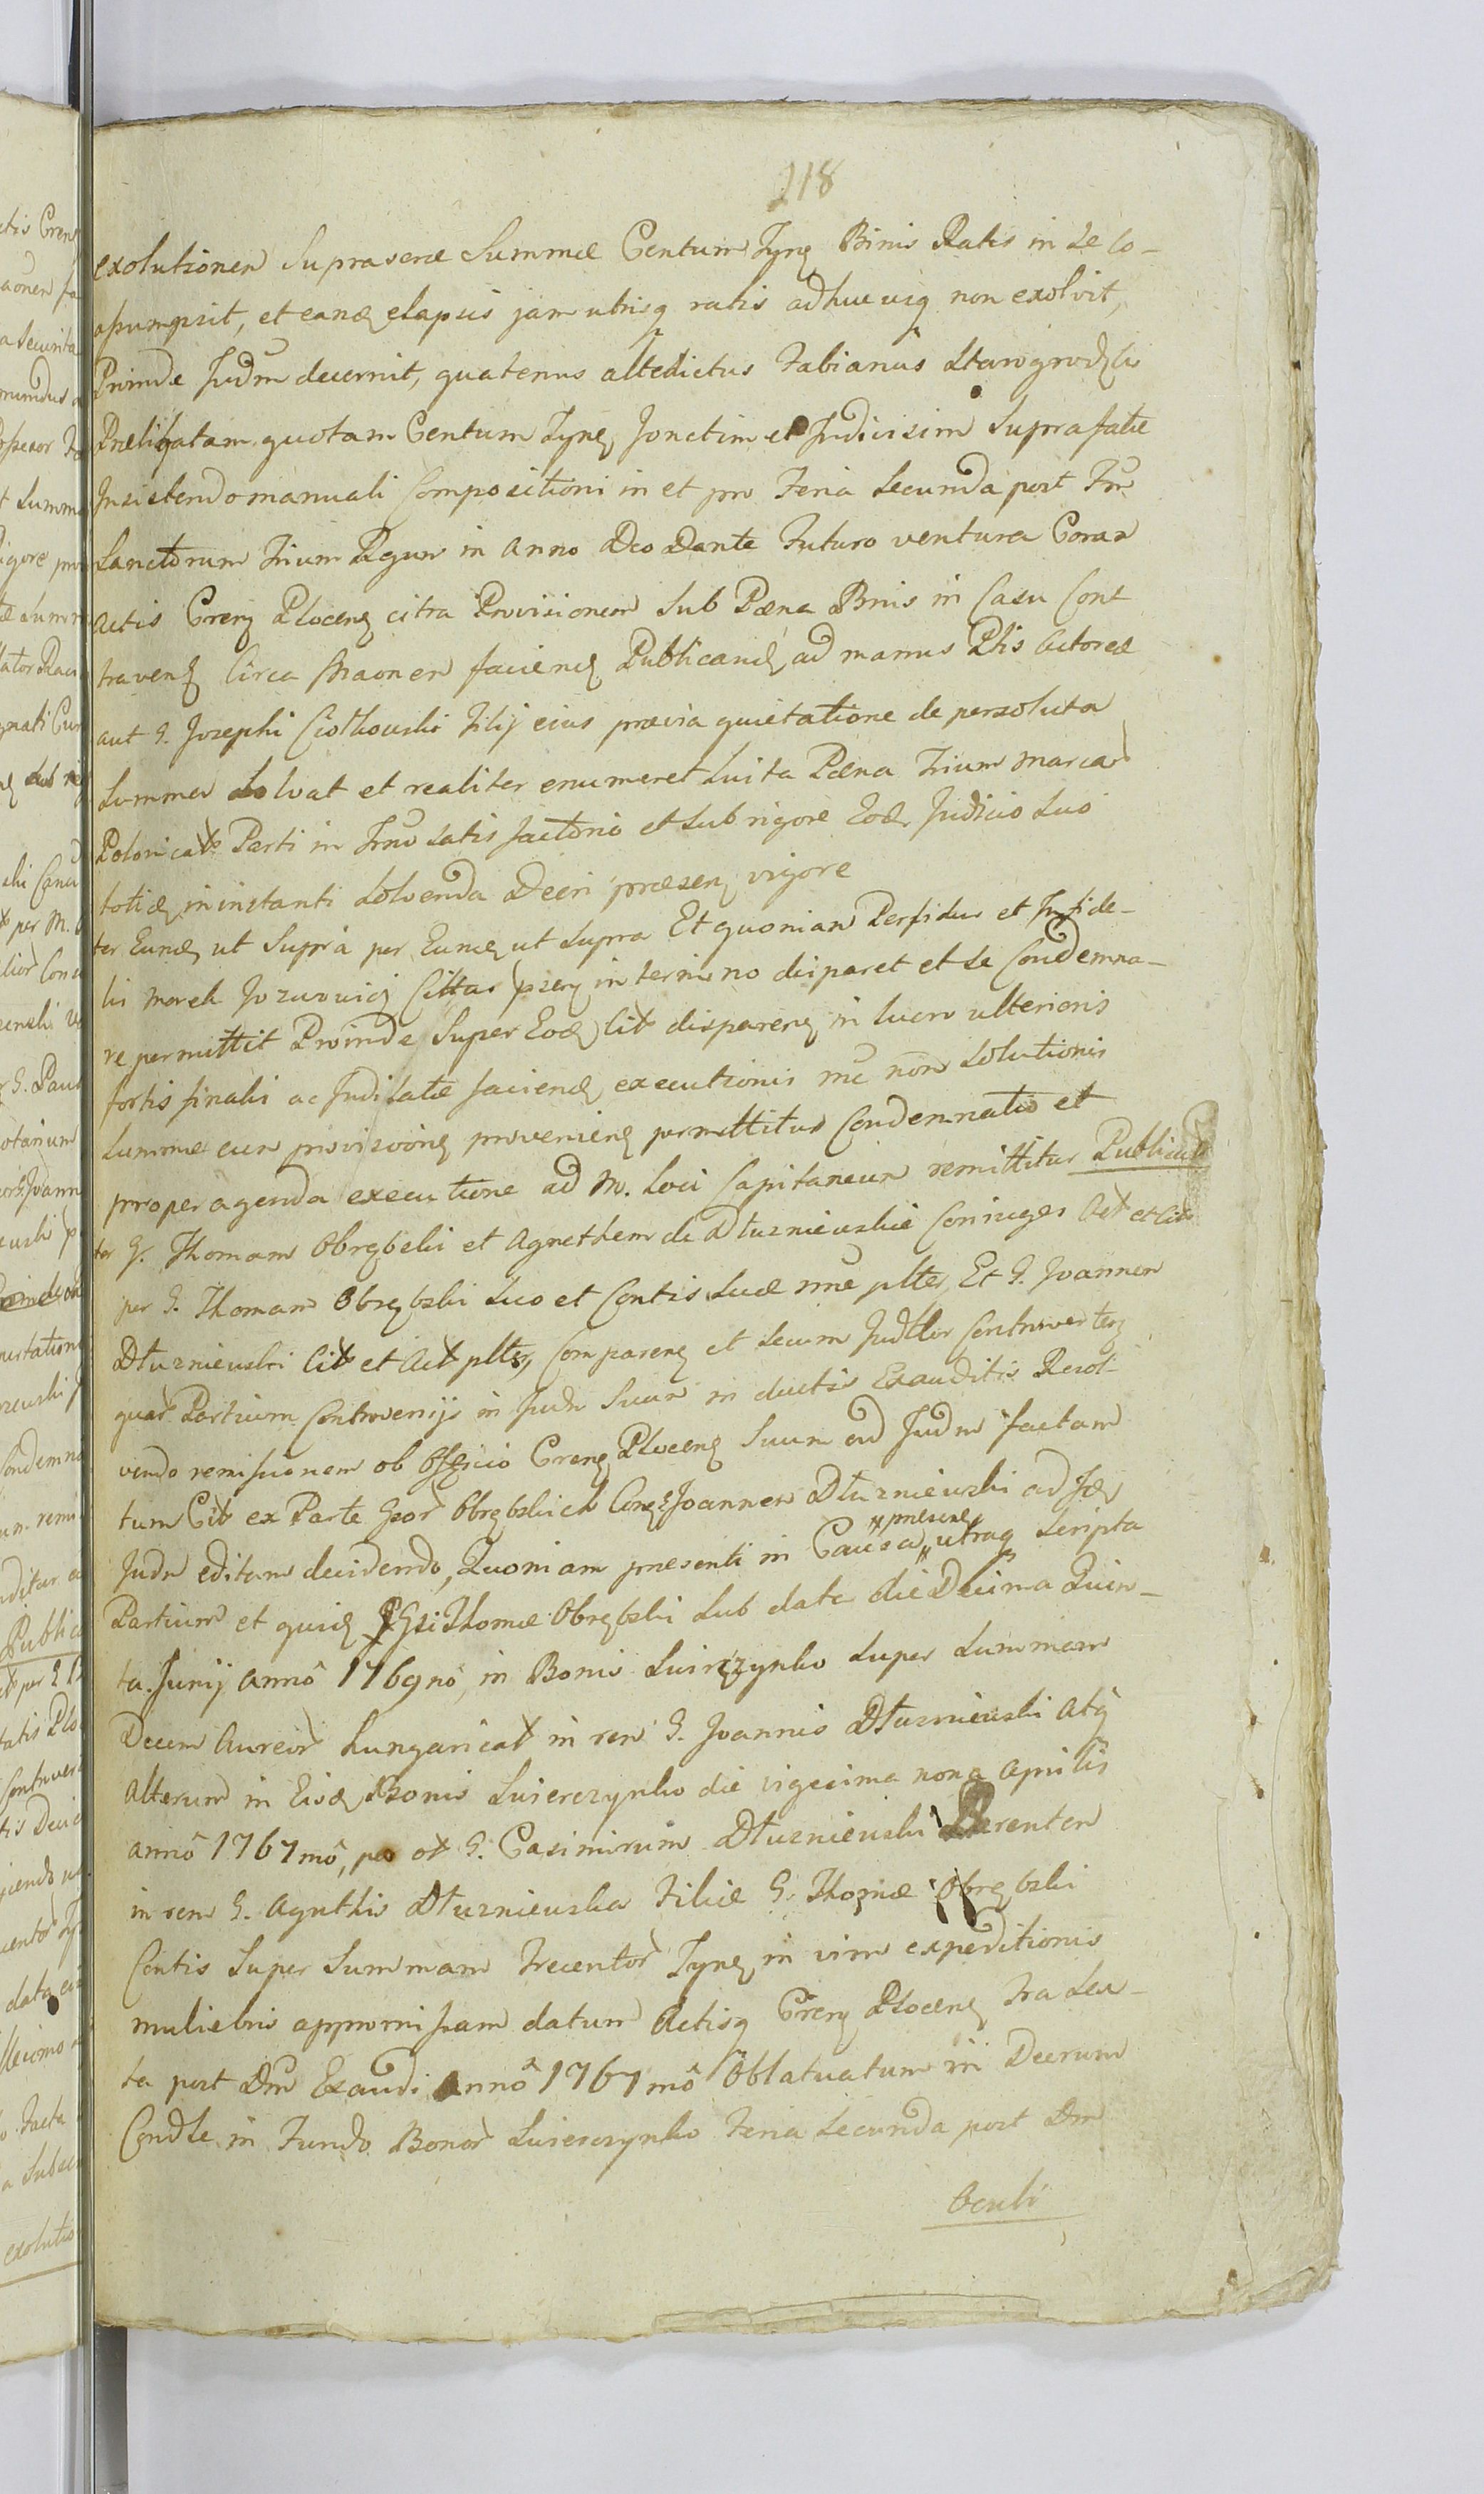 118
exolutionem Suprascrae Summae Centum Tynf Binis Ratis in Se co-
assumpsit, et eand elapsis jam utrisq ratis adhuc usq non exolvit,
Proinde Judm decernit, quatenus altedictus Fabianus Starogrodzki
Praelibatam quotam Centum Tynf Jonctim et Indivisim Suprafatae
Insistendo manuali Compositioni in et pro Feria Secunda post Fm
Sanctorum Trium Regum in Anno Deo Dante Futuro ventura Coram
Actis Cren Plocen citra Provisionem Sub Paena Bnis in Casu Cont
traven Circa faciend Publicand, ad manus Ptis Actoreae
aut G. Josephi Ciołkowski Filij eius praevia quietatione de persoluta
Summa Solvat et realiter enumeret Luita Paena Trium Marcar
Polonicat Parti in Trno Satisfactorio et Sub rigore Eod Judicio Suo
totid in instanti Solvenda Decri praesen vigore
ter Eund ut Supra per Eund ut Supra Et quoniam Perfidus et Infide-
lis Morek Jozwowicz Cittas in termino disparet et Se Condemna-
re permittit Proinde Super Eod Cit disparen in lucro ulterioris
fortis finalis ac Judilatae faciend executionis nec non Solutionis
Summae cum provision provenien permittitur Condemnatio et
pro peragenda executione ad M. Loci Capitaneum remittitur Publicat
ter G. Thomam Obrębski et Agnethem de Dłuzniewskie Coniuges Act et Cit
per G. Thomam Obrębski Suo et Contis Suae nne plter, Et G. Joannem
Dłuzniewski Cit et Act plter, Comparen et Secum Judtlor Controverten
quar Partium Controversijs in Judm Suum inductis Exauditis Resol-
vendo remissionem ab Officio Cren Plocen Suum ad Judm factam
tum Cit ex Parte Gsor Obrębskich Cong Joannem Dłuzniewski ad Id
praesen
Judm editam decidendo, Quoniam praesenti in Causa utraq Scripta
Partium et quid Gsi Thomae Obrębski Sub data die Decima Quin-
ta Junij Anno 1769no, in Bonis Swierczynko Super Summam
Decem Aureor Hungaricat in rem G. Joannis Dłuzniewski Atq
Alterum in Eisd Bonis Swierczynko die vigesima nona Aprilis
anno 1767mo, per ot G. Casimirum Dłuzniewski Parentem
in rem G. Agnethis Dłuzniewska Filiae G. Thomae Obrębski
Contis Super Summam Trecentor Tynf in vim expeditionis
muliebris appromissam datum Actisq Cren Plocen Fra Sex-
ta post Dm Exaudi Anno 1767mo Oblatuatum in Decrum
Condle in Fundo Bonor Swierczynko Feria Secunda post Dm
Oculi